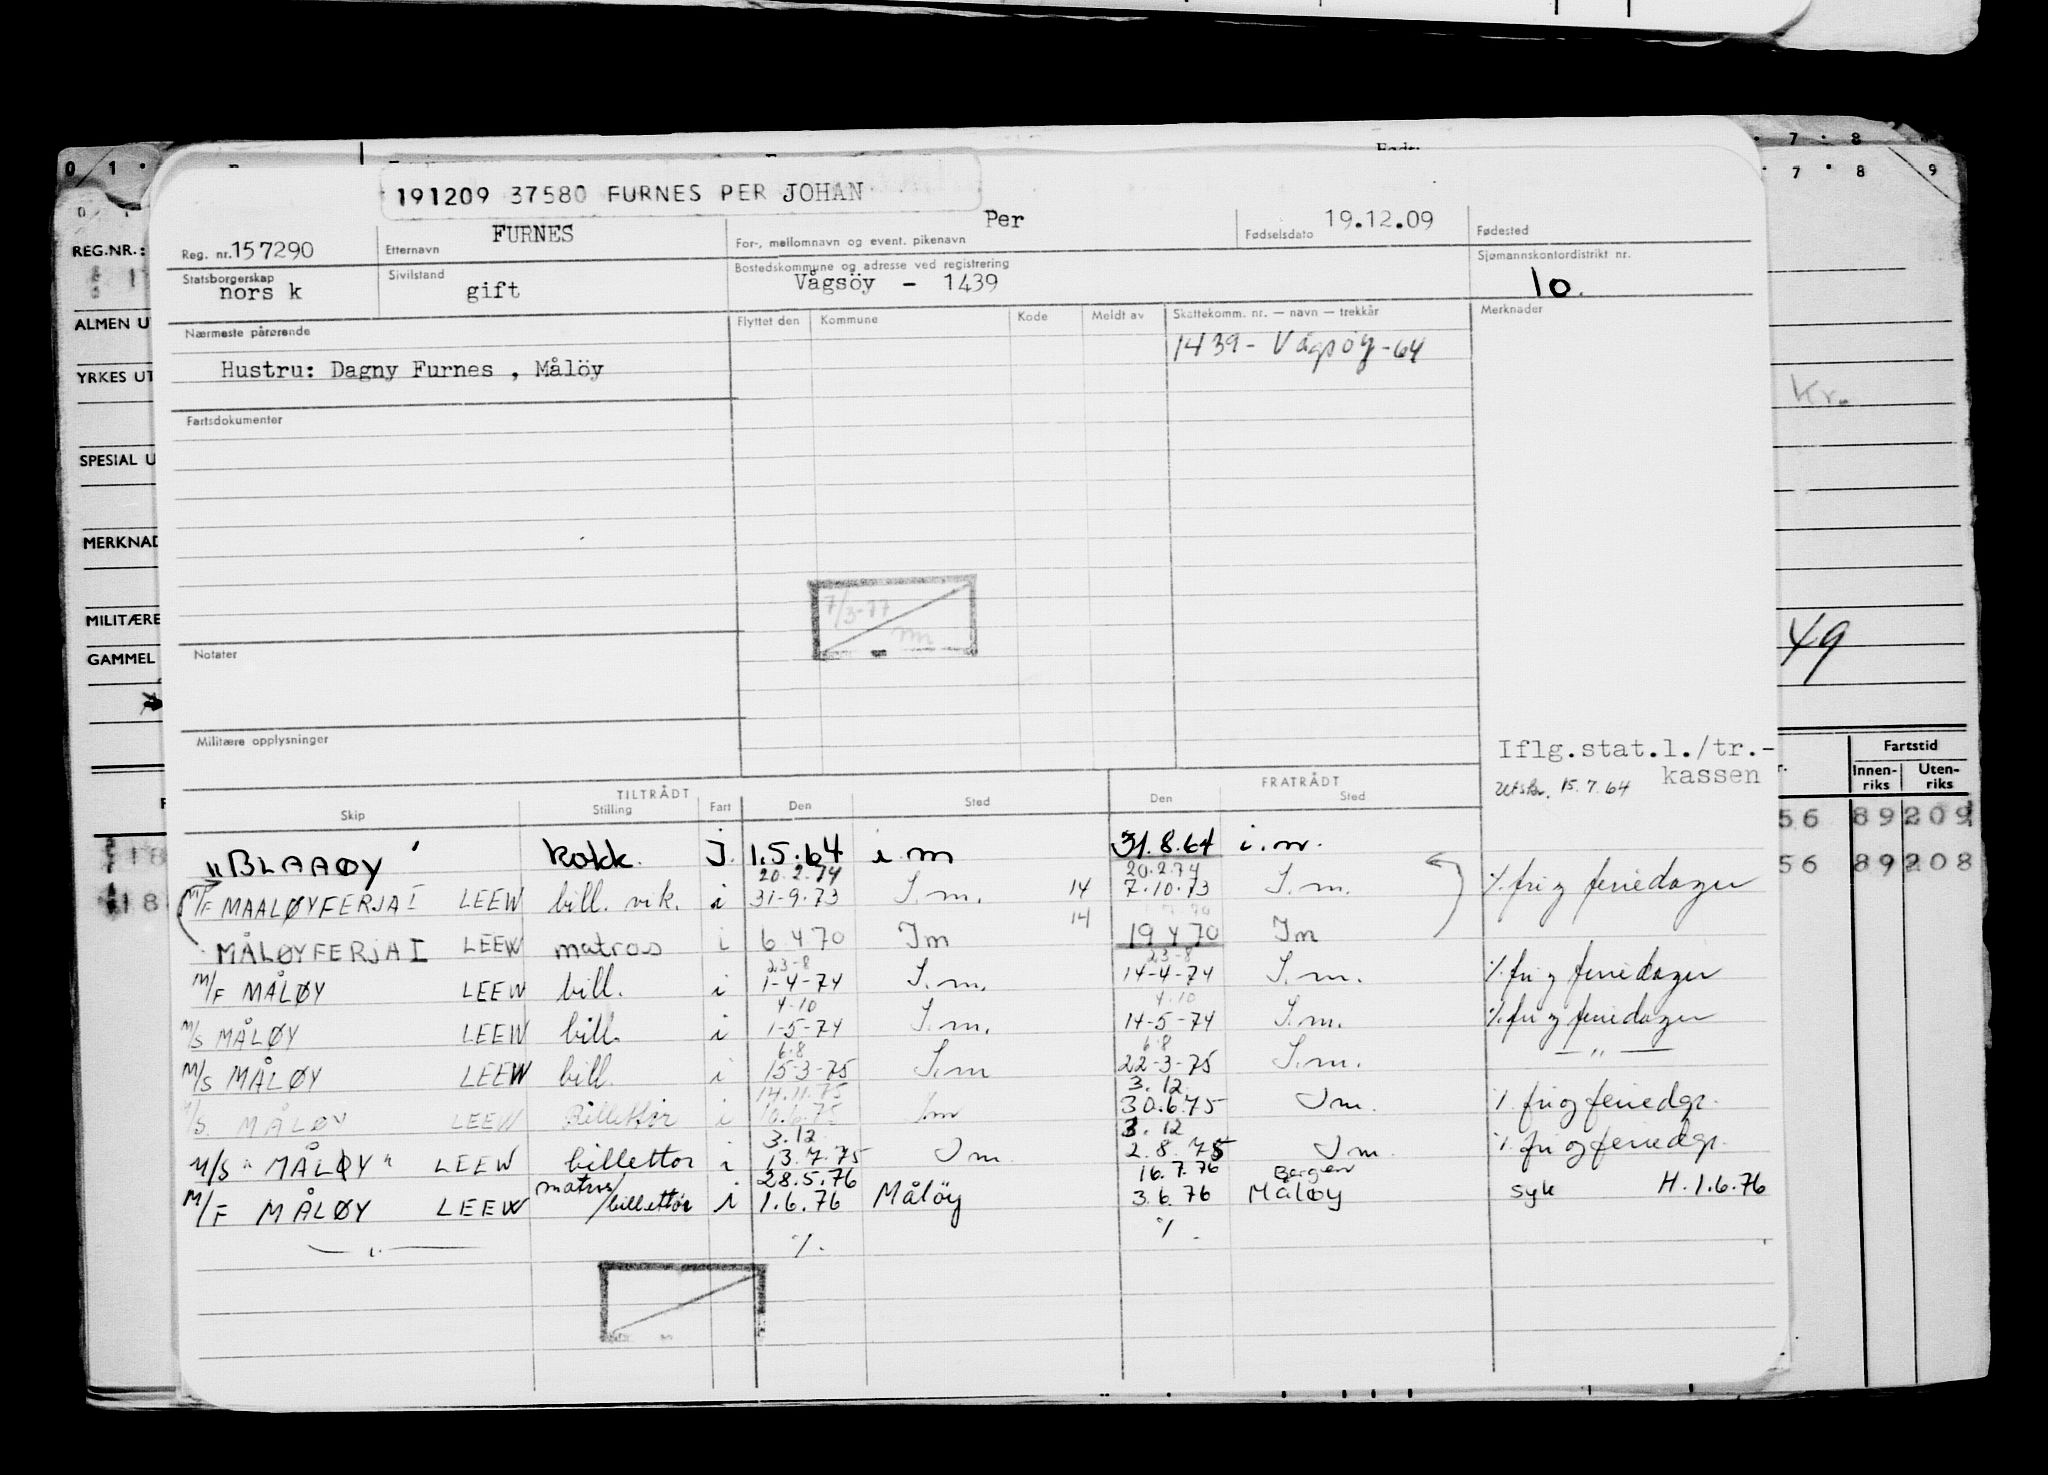 0 1 · · 7 · 8
0 1 · 7 · 8 9
191209 37580 FURNES PER JOHAN
REG.NR.:
Reg. nr. 157290 Etternavn FURNES For-, mellomnavn og event. pikenavn Per Fødselsdato 19.12.09 Fødested
Statsborgerskap norsk Sivilstand gift Bostedskommune og adresse ved registrering Vågsöy - 1439 Sjømannskontordistrikt nr. 10.
ALMEN U
Nærmeste pårørende Flyttet den Kommune Kode Meldt av Skattekomm. nr. — navn — trekkår Merknader
1439 - Vågsøy - 64
YRKES UT
Hustru: Dagny Furnes , Målöy
Kr.
Fartsdokumenter
SPESIAL U
MERKNAD
7/3-77
MILITÆRE
49
GAMMEL
Notater
Militære opplysninger
Iflg.stat.l./tr.-
kassen
15.7.64
Fartstid
Innen-riks Uten-riks
TILTRÅDT FRATRÅDT
Skip Stilling Fart Den Sted Den Sted
56 89 209
"BLAAØY" kokk. I. 1.5.64 i m 31.8.64 i.m.
56 89 208
20.2.74 20.2.74
M/F MAALØYFERJA I LEEW bill. vik. i 31-9-73 I.m. 14 7-10-73 I.m. % fri og feriedager
14
MÅLØYFERJA I LEEW matros i 6 4 70 Im 19 4 70 Im
23-8 23-8
M/F MÅLØY LEEW bill. i 1-4-74 I.m. 14-4-74 I.m. % fri og feriedager
4-10 4.10
M/S MÅLØY LEEW bill. i 1-5-74 I.m. 14-5-74 I.m. % fri og feriedager
6.8 6.8
M/S MÅLØY LEEW bill. i 15-3-75 I.m 22-3-75 I.m. — " —
14.11.75 3.12
M/S. MÅLØY LEEW Billettør i 10.6.75 Im 30.6.75 Im. % fri og feriedgr.
3.12 3.12
M/S "MÅLØY" LEEW billettor i 13.7.75 Im. 2.8.75 Im. % fri og feriedgr.
28.5.76 16.7.76 Bergen
M/F MÅLØY LEEW matros/billettør i 1.6.76 Målöy 3.6.76 Måløy syk H.1.6.76
— " — %. %.